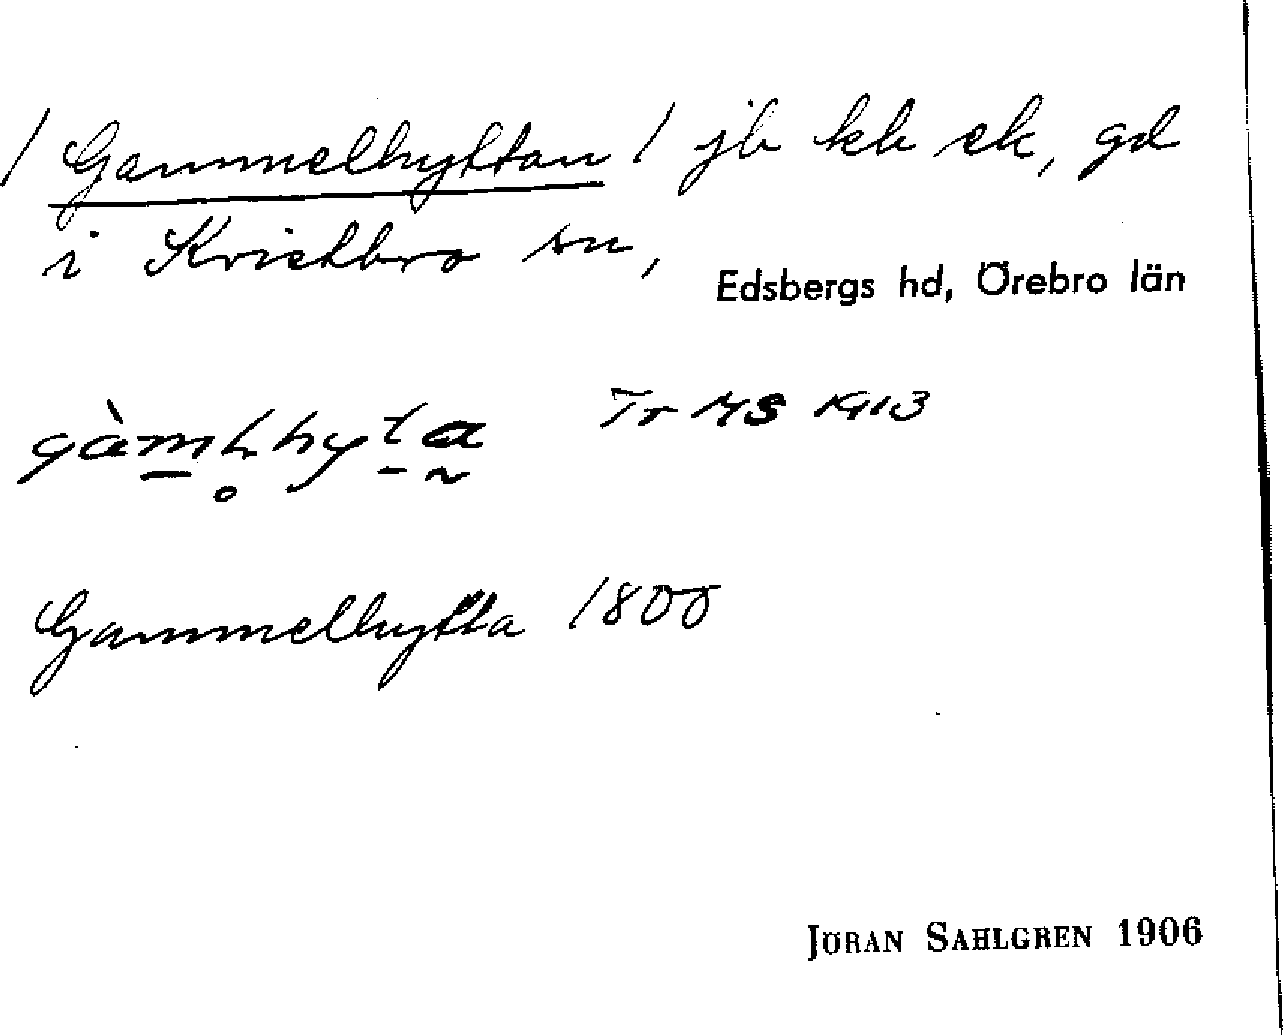 / Gammelhyttan / jb kb ek, gd
i Kvistbro sn, Edsbergs hd, Örebro län
Tr MS 1913
Gammelhytta 1800
JÖRAN SAHLGREN 1906